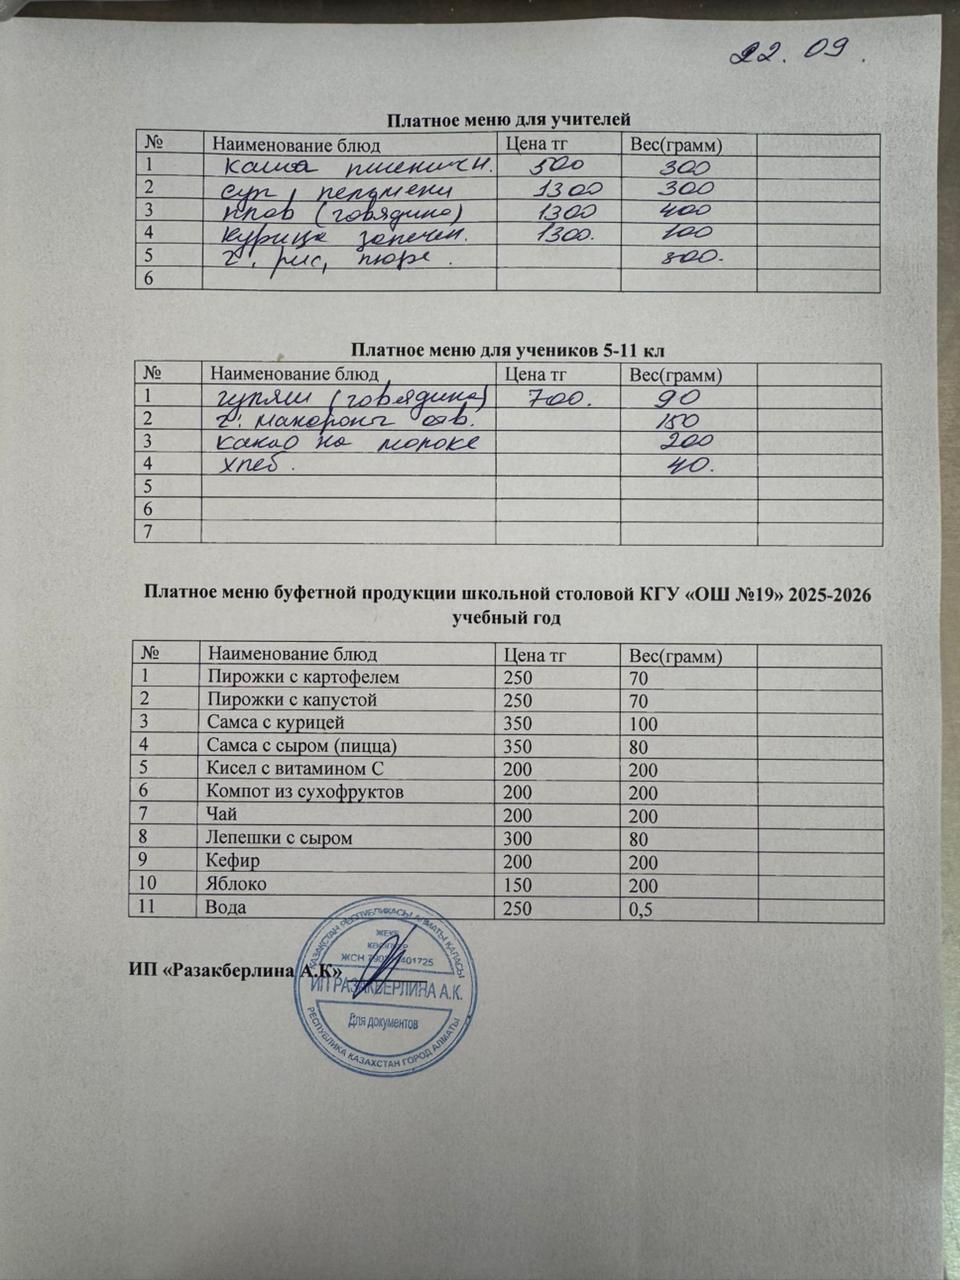 22. 09.
Платное меню для учителей
№ Наименование блюд Цена тг Вес(грамм)
1 каша пшеничн. 500 300
2 суп, пельмени 1300 300
3 плов (говядина) 1300 400
4 курица запечен. 1300. 100
5 г. рис, пюре. 300.
6
Платное меню для учеников 5-11 кл
№ Наименование блюд Цена тг Вес(грамм)
1 гуляш (говядина) 700. 90
2 г. макароны отв. 150
3 какао на молоке 200
4 хлеб. 40.
5
6
7
Платное меню буфетной продукции школьной столовой КГУ «ОШ №19» 2025-2026
учебный год
№ Наименование блюд Цена тг Вес(грамм)
1 Пирожки с картофелем 250 70
2 Пирожки с капустой 250 70
3 Самса с курицей 350 100
4 Самса с сыром (пицца) 350 80
5 Кисел с витамином С 200 200
6 Компот из сухофруктов 200 200
7 Чай 200 200
8 Лепешки с сыром 300 80
9 Кефир 200 200
10 Яблоко 150 200
11 Вода 250 0,5
ИП «Разакберлина А.К»
ҚАЗАҚСТАН РЕСПУБЛИКАСЫ АЛМАТЫ ҚАЛАСЫ
ЖЕКЕ
ЖСН
ИП РАЗАКБЕРЛИНА А.К.
Для документов
РЕСПУБЛИКА КАЗАХСТАН ГОРОД АЛМАТЫ